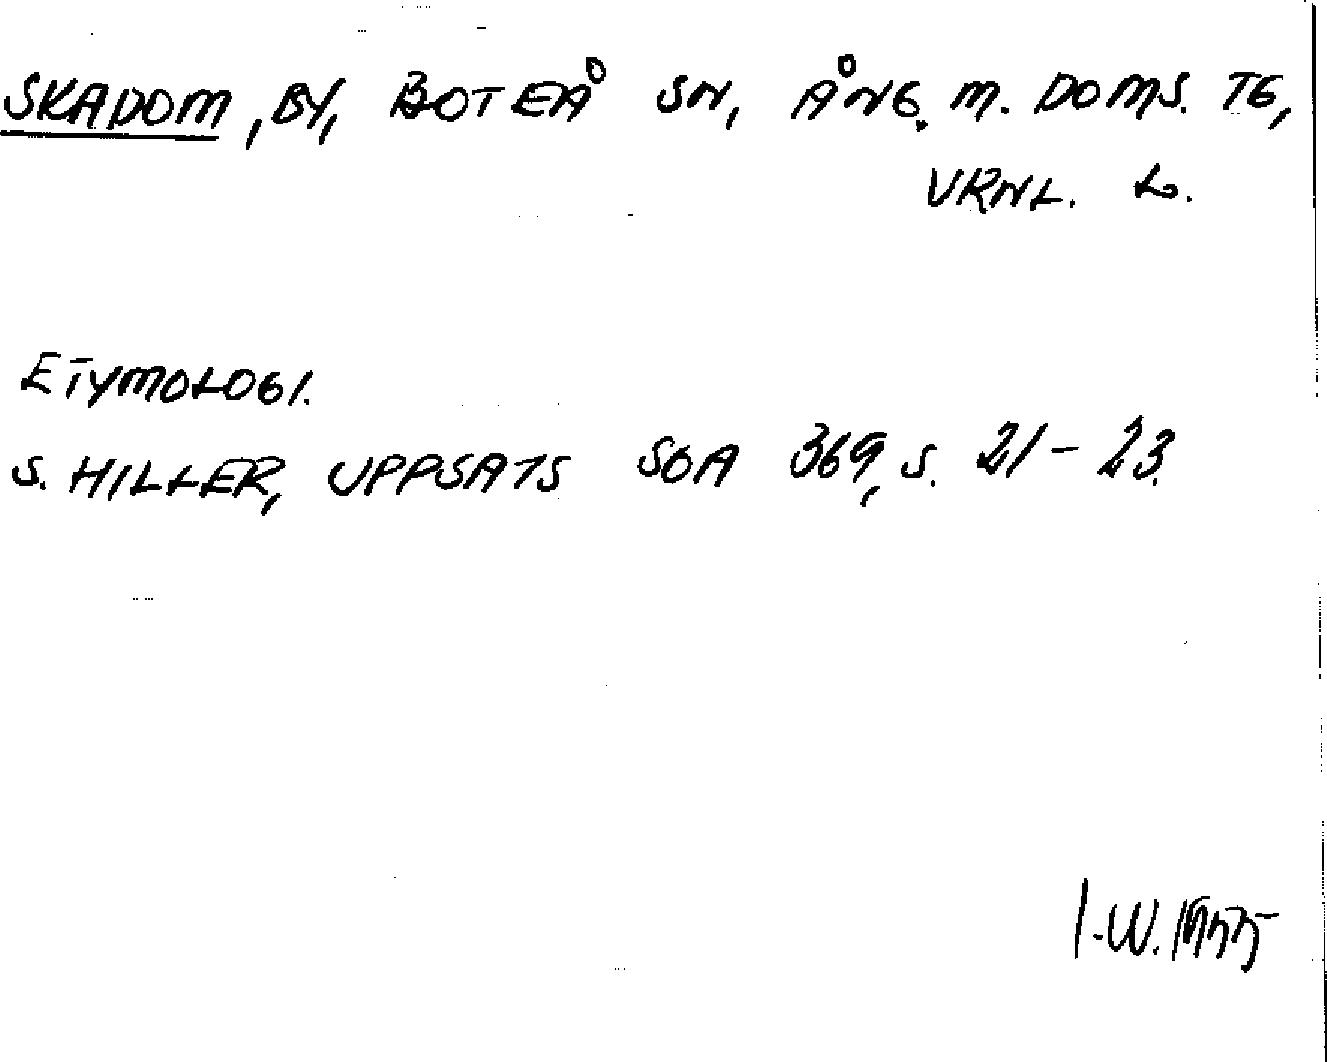 SKADOM, BY, BOTEÅ SN, ÅNG. M. DOMS. TG,
VRNL. L.
ETYMOLOGI.
S. HILLER, UPPSATS SOA 369, S. 21-23.
I.W.